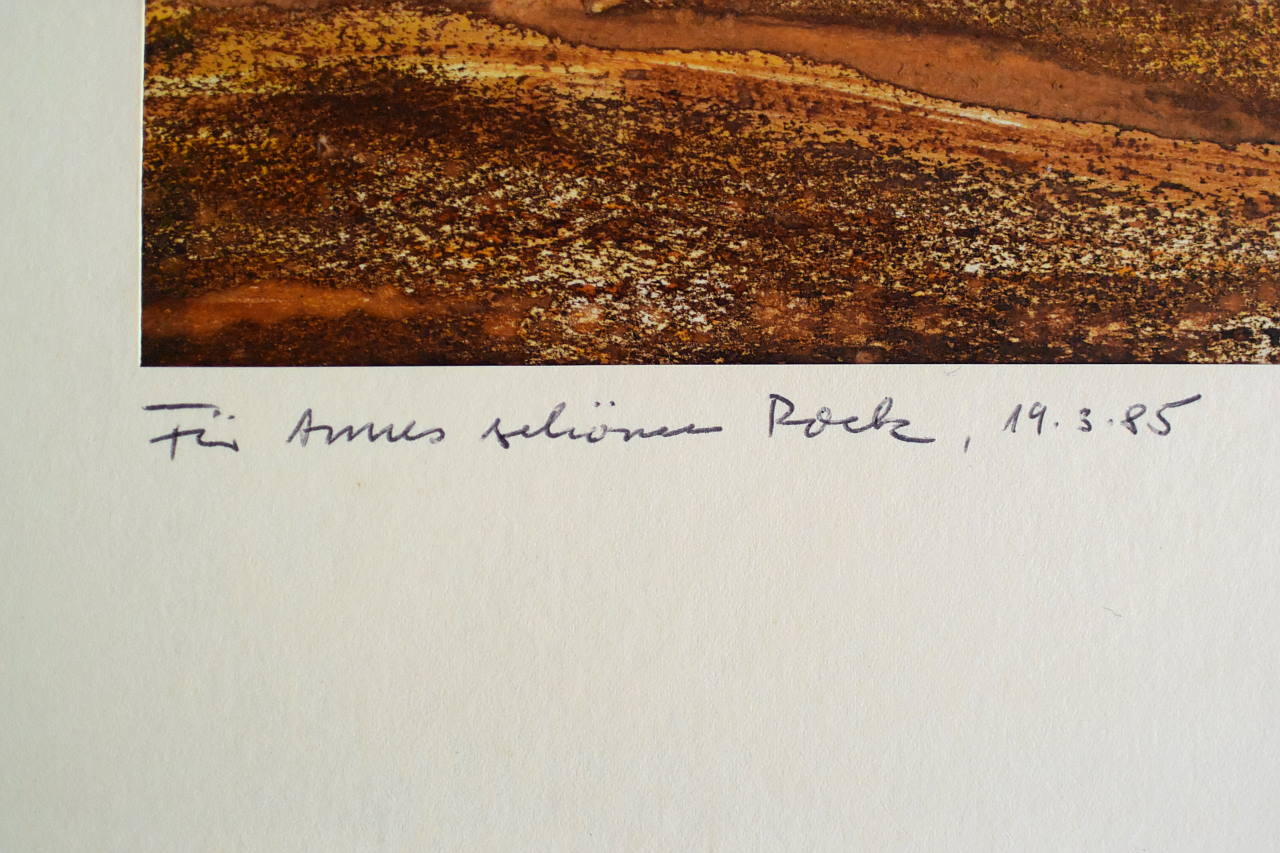 Für Annes schönen Rock, 19.3.85